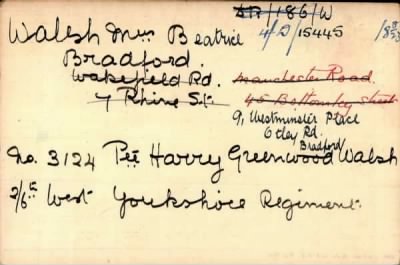 SR/186/W
Walsh Mrs Beatrice 4/D/15445
Bradford.
Wakefield Rd. Manchester Road.
7 Rhine St. 45 Bottomley Street
9, Westminster Place
Otley Rd.
Bradford
No. 3124 Pte Harry Greenwood Walsh
2/6th West Yorkshire Regiment.